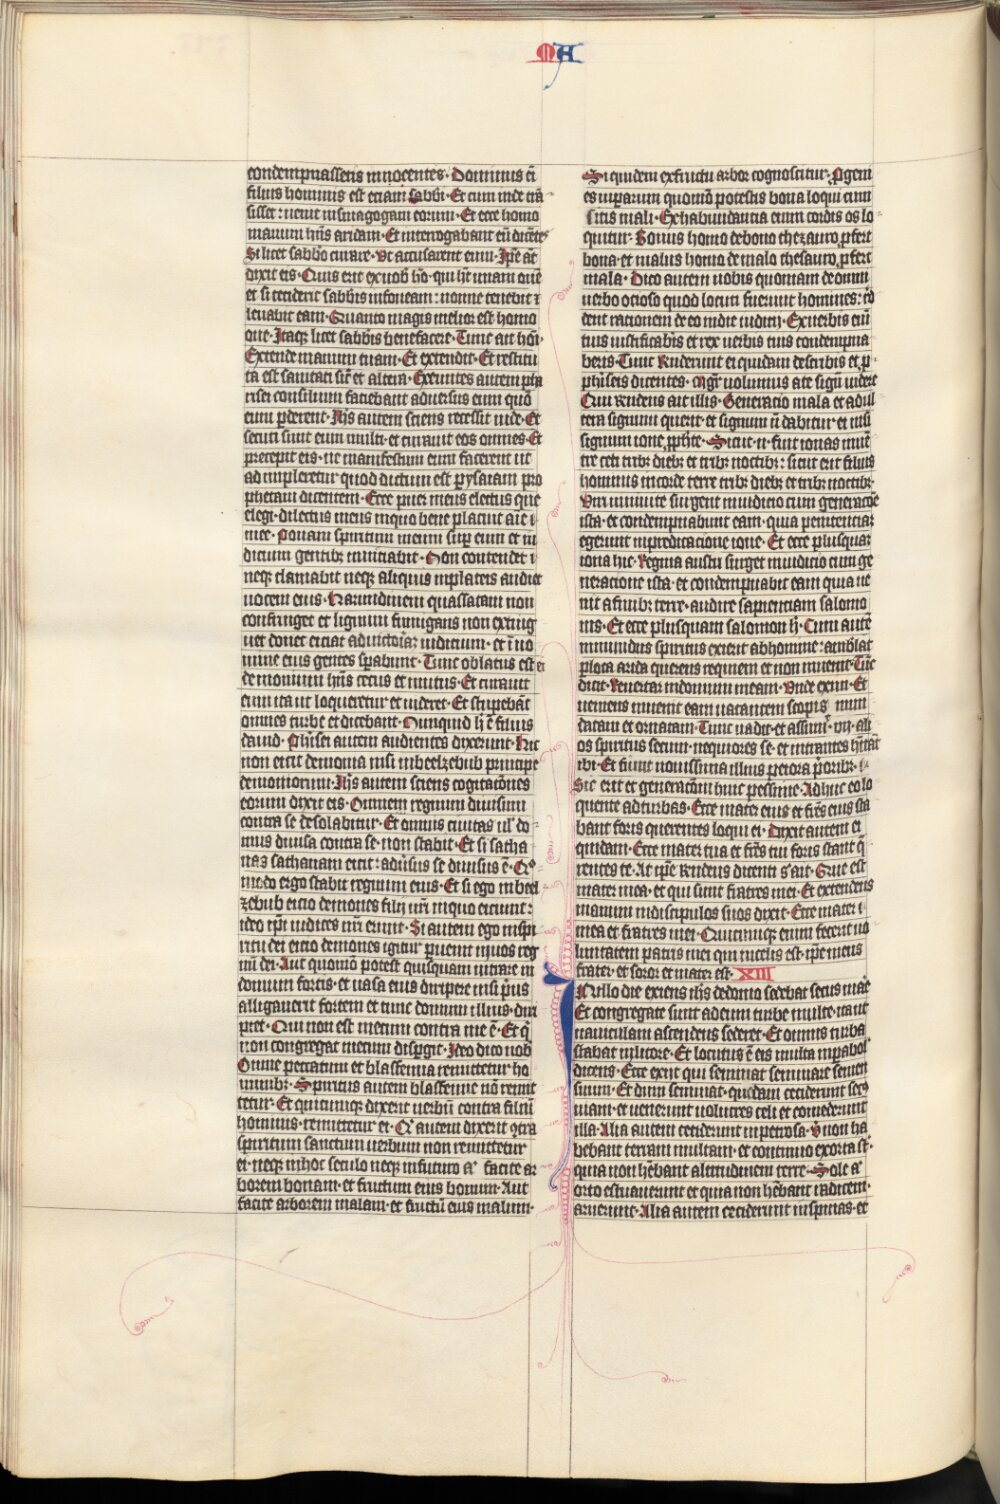 MA
condempnassetis innocentes· Dominus eni
filius hominis est etiam sabbi· Et cum inde tra
sisset: uenit in sinagogam eorum· Et ecce homo
manum hns aridam· Et interrogabant eu dicetes
Si licet sabbo curare· Vt accusarent eum· Ipe at
dixit eis· Quis erit ex uob ho· qui ht unam oue
et si ceciderit sabbis in foueam: nonne tenebit et
leuabit eam· Quanto magis melior est homo
oue· Itaqz licet sabbis benefacere· Tunc ait hoi·
Extende manum tuam· Et extendit· Et restitu
ta est sanitati sic et altera· Exeuntes autem pha
risei consilium faciebant aduersus eum quo
eum pderent· Ihs autem sciens recessit inde· Et
secuti sunt eum multi· et curauit eos omnes· Et
precepit eis· ne manifestum eum facerent ut
ad impleretur quod dictum est p ysaiam pro
phetam dicentem· Ecce puer meus electus que
elegi· dilectus meus in quo bene placuit aie
mee· Ponam spiritum meum sup eum et iu
dicium gentibz nunciabit· Non contendet
neqz clamabit neqz aliquis in plateis audiet
uocem eius· Harundinem quassatam non
confringet et lignum fumigans non exting
uet donec eiciat ad uictoriaz iudicium· et i no
mine eius gentes spabunt· Tunc oblatus est ei
demonium hns cecus et mutus· Et curauit
eum ita ut loqueretur et uideret· Et stupebant
omnes turbe et dicebant· Nunquid h e filius
dauid· Phisei autem audientes dixerunt· Hic
non eicit demonia nisi in beelzebub principe
demoniorum· Ihs autem sciens cogitaciones
eorum dixit eis· Omnem regnum diuisum
contra se desolabitur· Et omnis ciuitas ul do
mus diuisa contra se· non stabit· Et si satha
nas sathanam eicit: aduersus se diuisus e· Quo
modo ergo stabit regnum eius· Et si ego in beel
zebub eicio demones filij uri in quo eiciunt:
ideo ipi iudices uri erunt· Si autem ego in spi
ritu dei eicio demones igitur puenit in uos reg
nu dei· Aut quomo potest quisquam intrare in
domum fortis· et uasa eius diripere nisi pus
alligauerit fortem et tunc domum illius· diri
piet· Qui non est mecum contra me e· Et q
non congregat mecum dispgit· Ideo dico uob
Omne peccatum et blasfemia remittetur ho
minibz· Spiritus autem blasfemie no remit
tetur· Et quicumqz dixerit uerbu contra filiu
hominis· remittetur ei· Qi autem dixerit qtra
spiritum sanctum uerbum non remittetur
ei· neqz in hoc seculo neqz in futuro aut facite ar
borem bonam· et fructum eius bonum· Aut
facite arborem malam· et fructu eius malum·
Siquidem ex fructu arbor cognoscitur· Pgeni
es uiperarum quomo potestis bona loqui cum
sitis mali· Ex habundancia enim cordis os lo
quitur· Bonus homo de bono thezauro pfert
bona· et malus homo de malo thesauro pfert
mala· Dico autem uobis quoniam de omni
uerbo ocioso quod locuti fuerint homines: red
dent rationem de eo in die iudicij· Ex uerbis eni
tuis iustificabis et ex uerbis tuis condempna
beris· Tunc Rnderunt ei quidam de scribis et
phiseis dicentes· Mgr uolumus a te signu uidere
Qui Rndens ait illis· Generacio mala et adul
tera signum querit· et signum n dabitur ei nisi
signum ione pphte· Sicut n fuit ionas in uen
tre ceti tribz diebz et tribz noctibz: sicut erit filius
hominis in corde terre tribz diebz et tribz noctibz·
Viri niniuite surgent in iudicio cum generacoe
ista· et condempnabunt eam· quia penitentiaz
egerunt in predicacione ione· Et ecce plusquaz
iona hic· Regina austri surget in iudicio cum ge
neracione ista· et condempnabit eam quia ue
nit a finibz terre· audire sapienciam salomo
nis· Et ecce plusquam salomon h· Cum aute
inmundus spiritus exierit ab homine: ambulat
p loca arida querens requiem et non inuenit· Tuc
dicit· Reuertar in domum meam· Vnde exiui· Et
ueniens inuenit eam uacantem scopis mun
datam et ornatam· Tunc uadit· et assumit vii· ali
os spiritus secum· nequiores se· et intrantes hitat
ibi· Et fiunt nouissima illius peiora prioribz·
Sic erit et generacoi huic pessime· Adhuc eo lo
quente ad turbas· Ecce mater eius et fres eius sta
bant foris querentes loqui ei· Dixit autem ei
quidam· Ecce mater tua et fres tui foris stant q
rentes te· At ipe Rndens dicenti s ait· Que est
mater mea· et qui sunt fratres mei· Et extendens
manum in discipulos suos dixit· Ecce mater
mea et fratres mei· Quicumque enim fecerit uo
luntatem patris mei qui in celis est· ipe meus
frater· et soror et mater est· XIII
In illo die exiens ihs de domo sedebat secus mare
Et congregate sunt ad eum turbe multe· ita ut
nauiculam ascendens sederet· Et omnis turba
stabat in litore· Et locutus e eis multa in pabol
dicens· Ecce exiit qui seminat seminare semen
suum· Et dum seminat· quedam ceciderunt secus
uiam· et uenerunt uolucres celi et comederunt
illa· Alia autem ceciderunt in petrosa· Vbi non ha
bebant terram multam· et continuo exorta st·
quia non hebant altitudinem terre· Sole at
orto estuauerunt et quia non hebant radicem·
aruerunt· Alia autem ceciderunt in spinas· et